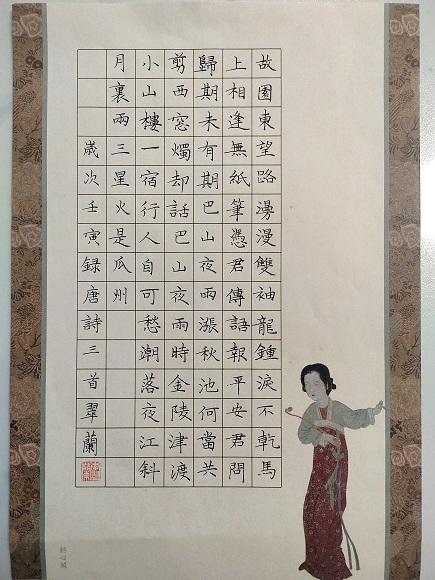 故園東望路漫漫雙袖龍鍾淚不乾馬
上相逢無紙筆憑君傳語報平安君問
歸期未有期巴山夜雨漲秋池何當共
剪西窓燭却話巴山夜雨時金陵津渡
小山樓一宿行人自可愁潮落夜江斜
月裏兩三星火是瓜州
歲次壬寅録唐詩三首翠蘭